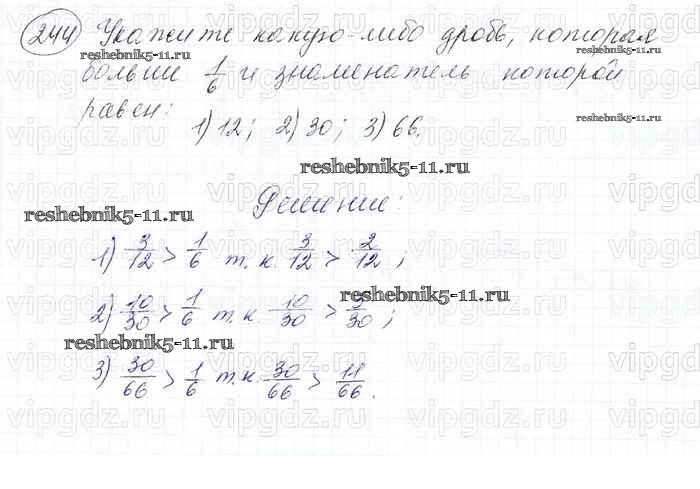 244 Укажите какую-либо дробь, которая
больше 1/6 и знаменатель которой
равен:
1) 12; 2) 30; 3) 66.
reshebnik5-11.ru
reshebnik5-11.ru
reshebnik5-11.ru
reshebnik5-11.ru
Решение:
1) 3/12 > 1/6 т.к. 3/12 > 2/12;
reshebnik5-11.ru
2) 10/30 > 1/6 т.к. 10/30 > 5/30;
reshebnik5-11.ru
3) 30/66 > 1/6 т.к. 30/66 > 11/66.
vipgdz.ru